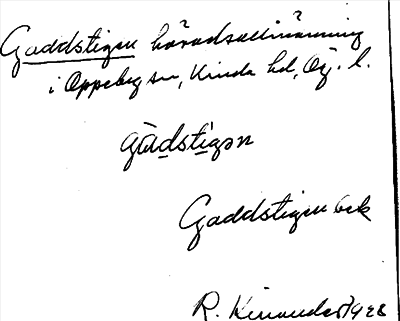 Gaddstigen häradsallmänning
i Oppeby sn, Kinda hd, Ög. l.
gad̲sti̲gən
Gaddstigen bek
R. 1928